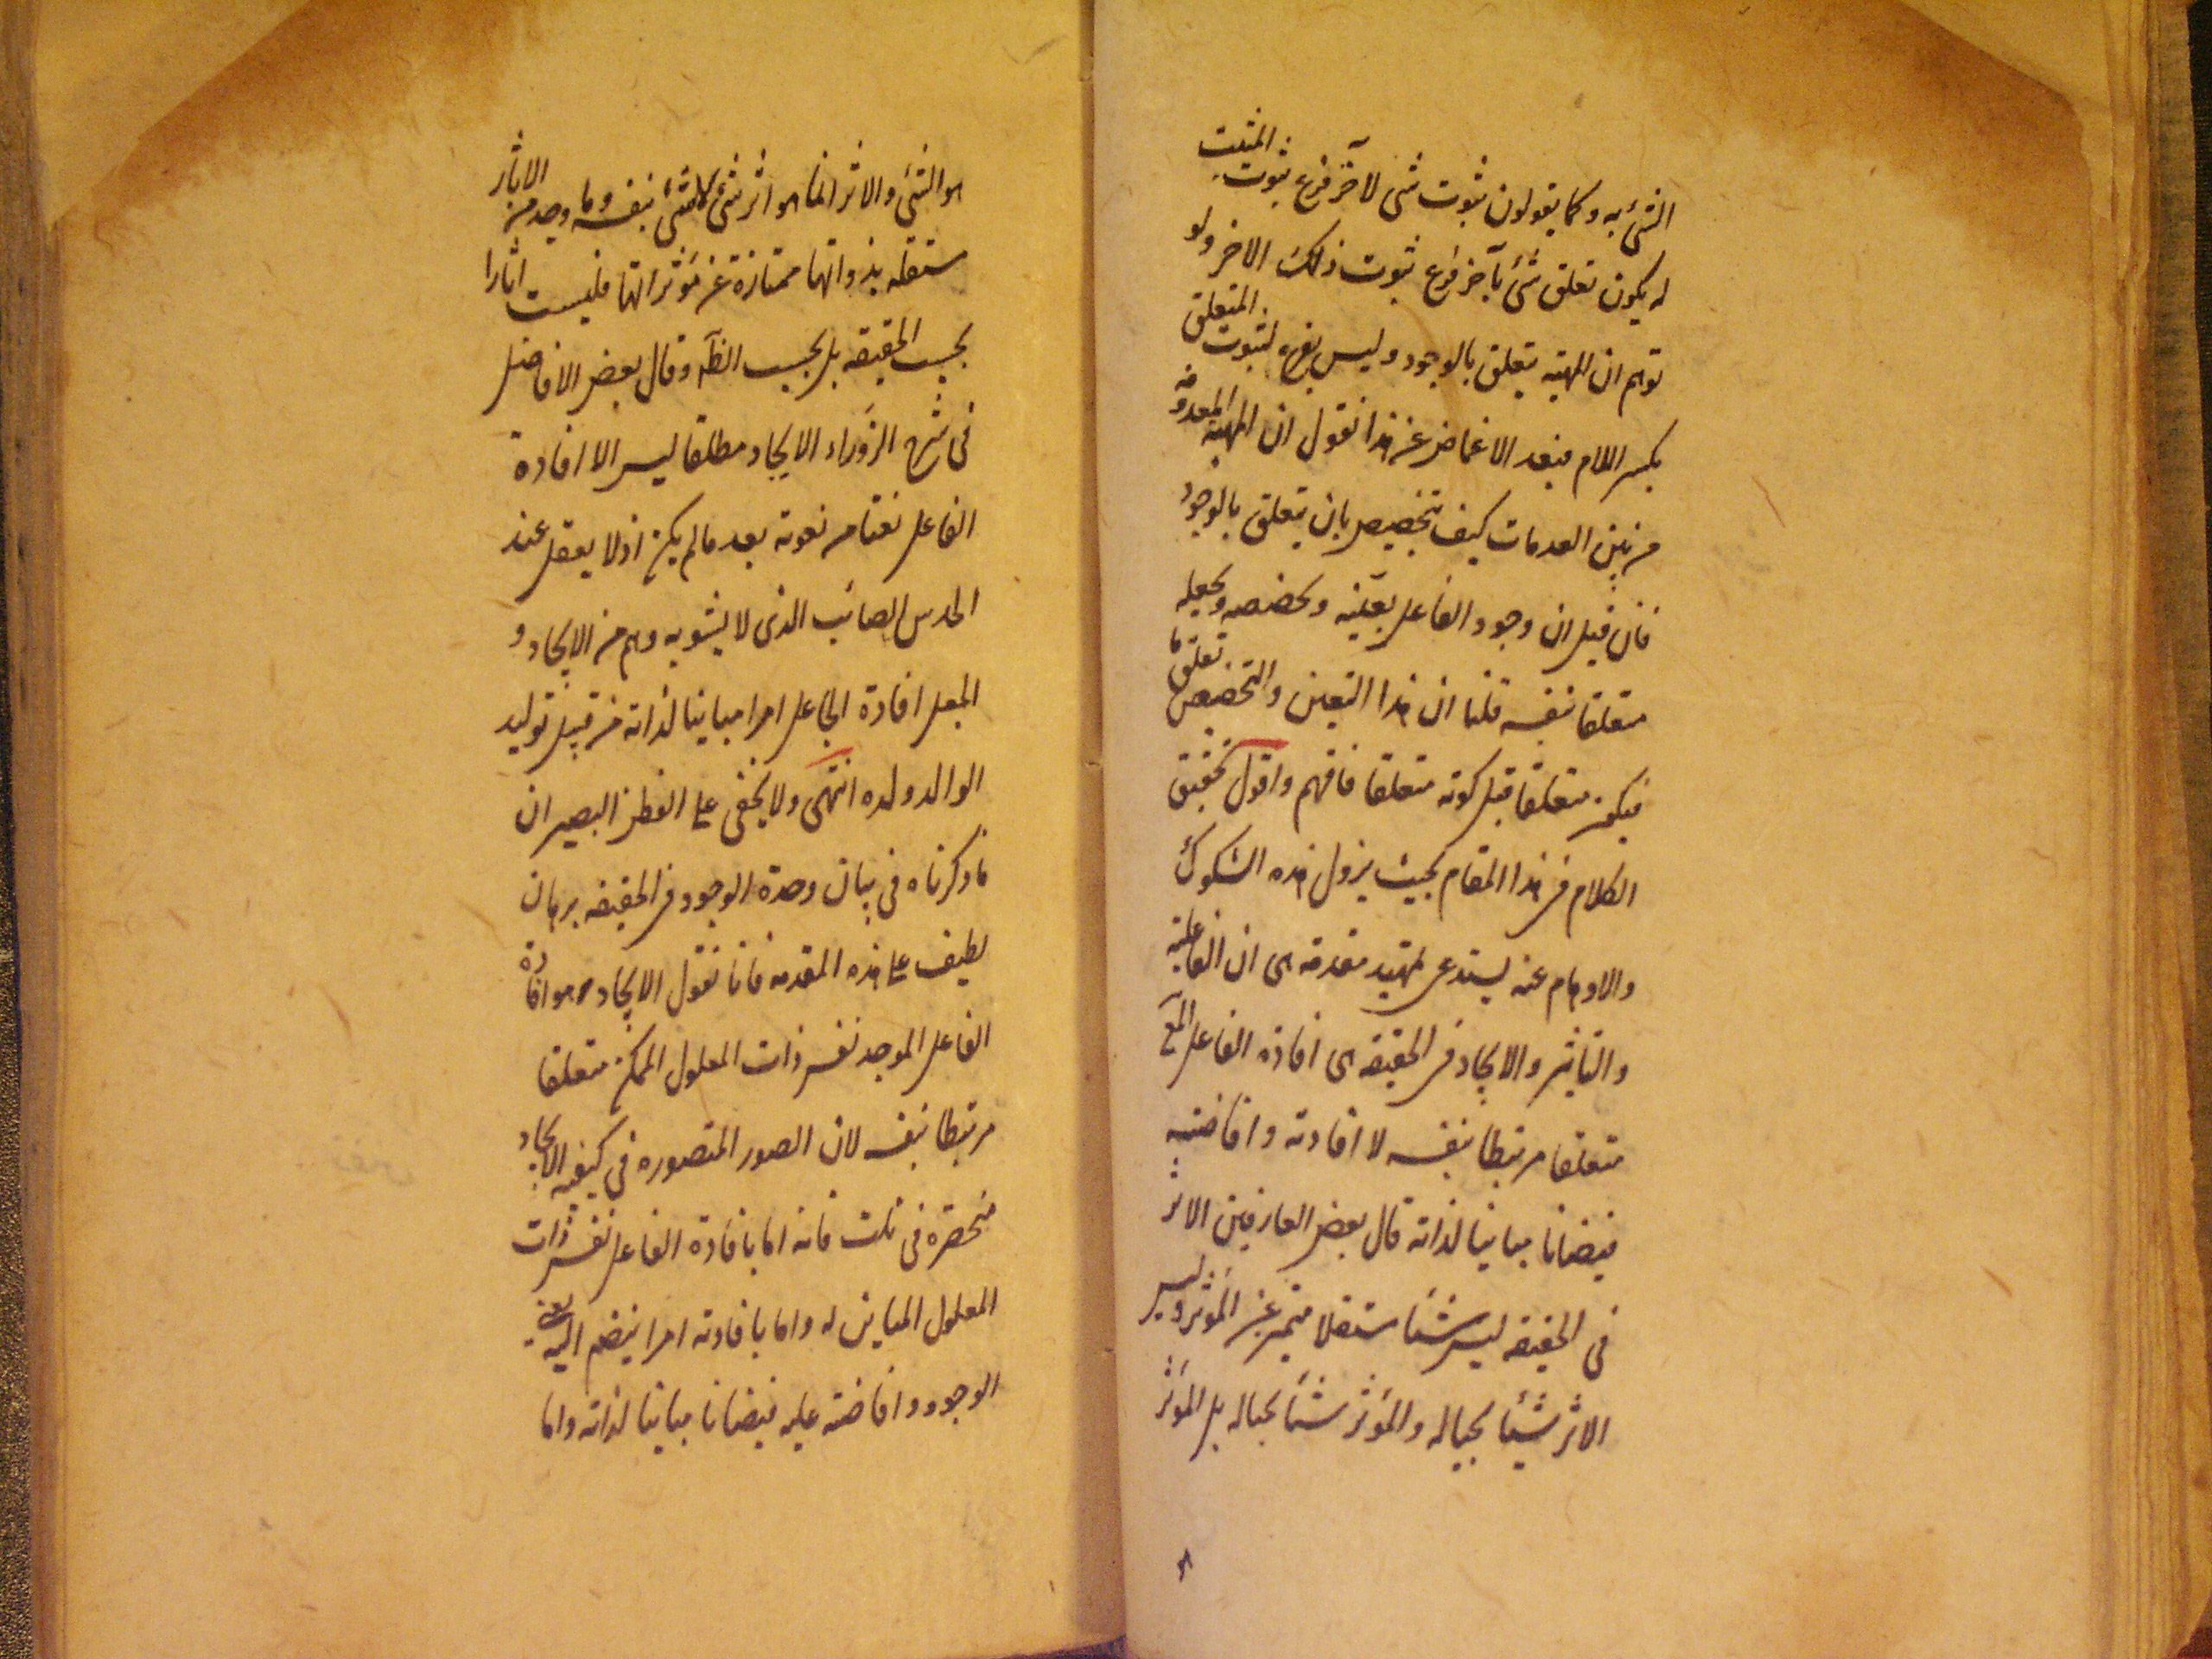 الشئ به وكما يقولون ثبوت شئ لآخر فرع ثبوت المثبت
له يكون تعلق شئ بآخر فرع ثبوت ذلك الاخر ولو
توهم ان المهية يتعلق بالوجود وليس بفرع لثبوت المتعلق
بكسر اللام فبعد الاغماض عن هذا نقول ان المهية المعدومة
من بين العدمات كيف تخصيص بان يتعلق بالوجود
فان قيل ان وجود الفاعل يعينه ويخصصه ويجعله
متعلقا بنفسه قلنا ان هذا التعين والتخصيص تعلق ما
فيكون متعلقا قبل كونه متعلقا فافهم واقول تحقيق
الكلام في هذا المقام بحيث يزول هذه الشكوك
والاوهام عنه يستدعى تمهيد مقدمة هى ان الفاعلية
والتأثير والايجاد في الحقيقه هى افادة الفاعل
متعلقا مرتبطا بنفسه لا افادته وافاضته
فيضانا مباينا لذاته قال بعض العارفين الاثر
فى الحقيقه ليس شيئا مستقلا متميز عن المؤثر وليس
الاثر شيئا بحياله والمؤثر شيئا بحياله بل المؤثر
هو الشئ والاثر انما هو اثر شئ لا شئ بنفسه وما وجد من الاثار
مستقله بذواتها ممتازة عن مؤثراتها فليست اثارا
بحسب الحقيقه بل بحسب الظاهر وقال بعض الافاضل
فى شرح الزوراء الايجاد مطلقا ليس الا افادة
الفاعل نعتا من نعوته بعد ما لم يكن اذ لا يعقل عند
الحدس الصائب الذى لا يشوبه وهم من الايجاد و
الجعل افادة الجاعل امرا مباينا لذاته من قبيل توليد
الوالد ولده انتهى ولا يخفى على الفطن البصير ان
ما ذكرناه فى بيان وحدة الوجود في الحقيقه برهان
لطيف على هذه المقدمه فانا نقول الايجاد هو افادة
الفاعل الموجد نفس ذات المعلول الممكن متعلقا
مرتبطا بنفسه لان الصور المتصوره في كيفية الايجاد
منحصرة فى ثلث فانه اما بافادة الفاعل نفس ذات
المعلول المباين له واما بافادته امرا ينضم اليه يعنى
الوجود وافاضته عليه فيضانا مباينا لذاته واما